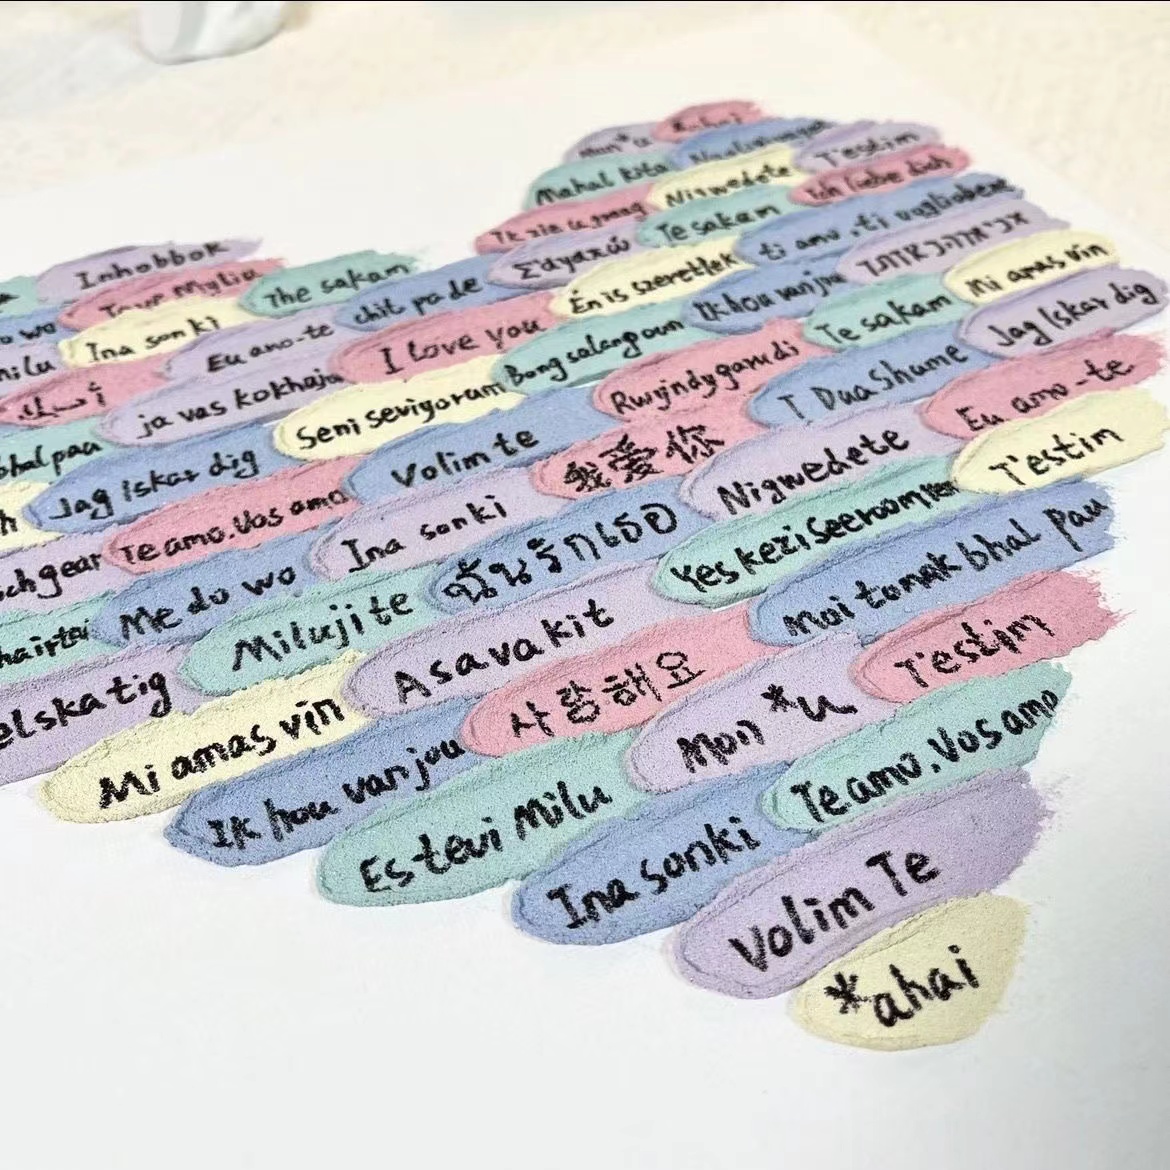 Mon *u
Mahal kita
Nigwedete
T'estim
Ich liebe dich
Te sakam
Σ'αγαπώ
ti amo.ti vogliobene
Inhobbok
The sakam
chit pa de
Én is szeretlek
Ik hou van jou
Mi amas vin
Ina sonki
Eu amo-te
I love you
Bong salang oun
Te sakam
Jag Iskar dig
ja vas kokhaja
Seni seviyorum
Rwyindygarudi
T Dua Shume
Eu amo-te
bhal pau
Jag Iskar dig
Volim te
我爱你
Nigwedete
T'estim
Te amo.Vos amo
Ina sonki
ฉันรักเธอ
Yes kezi Seeroom
Moi tomak bhal pau
Me do wo
Miluji te
Asavakit
사랑해요
T'estim
elska tig
Mi amas vin
Ik hou van jou
Es tevi Milu
Mon *u
Te amo.Vos amo
Ina sonki
Volim Te
*ahai